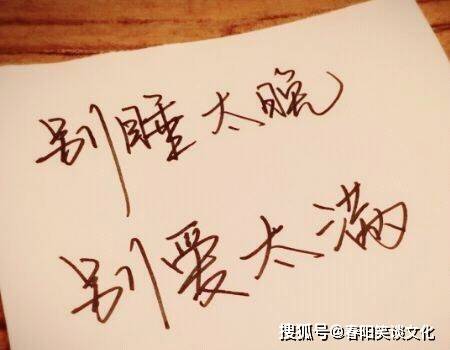 别睡太晚
别爱太满
搜狐号@春阳笑谈文化